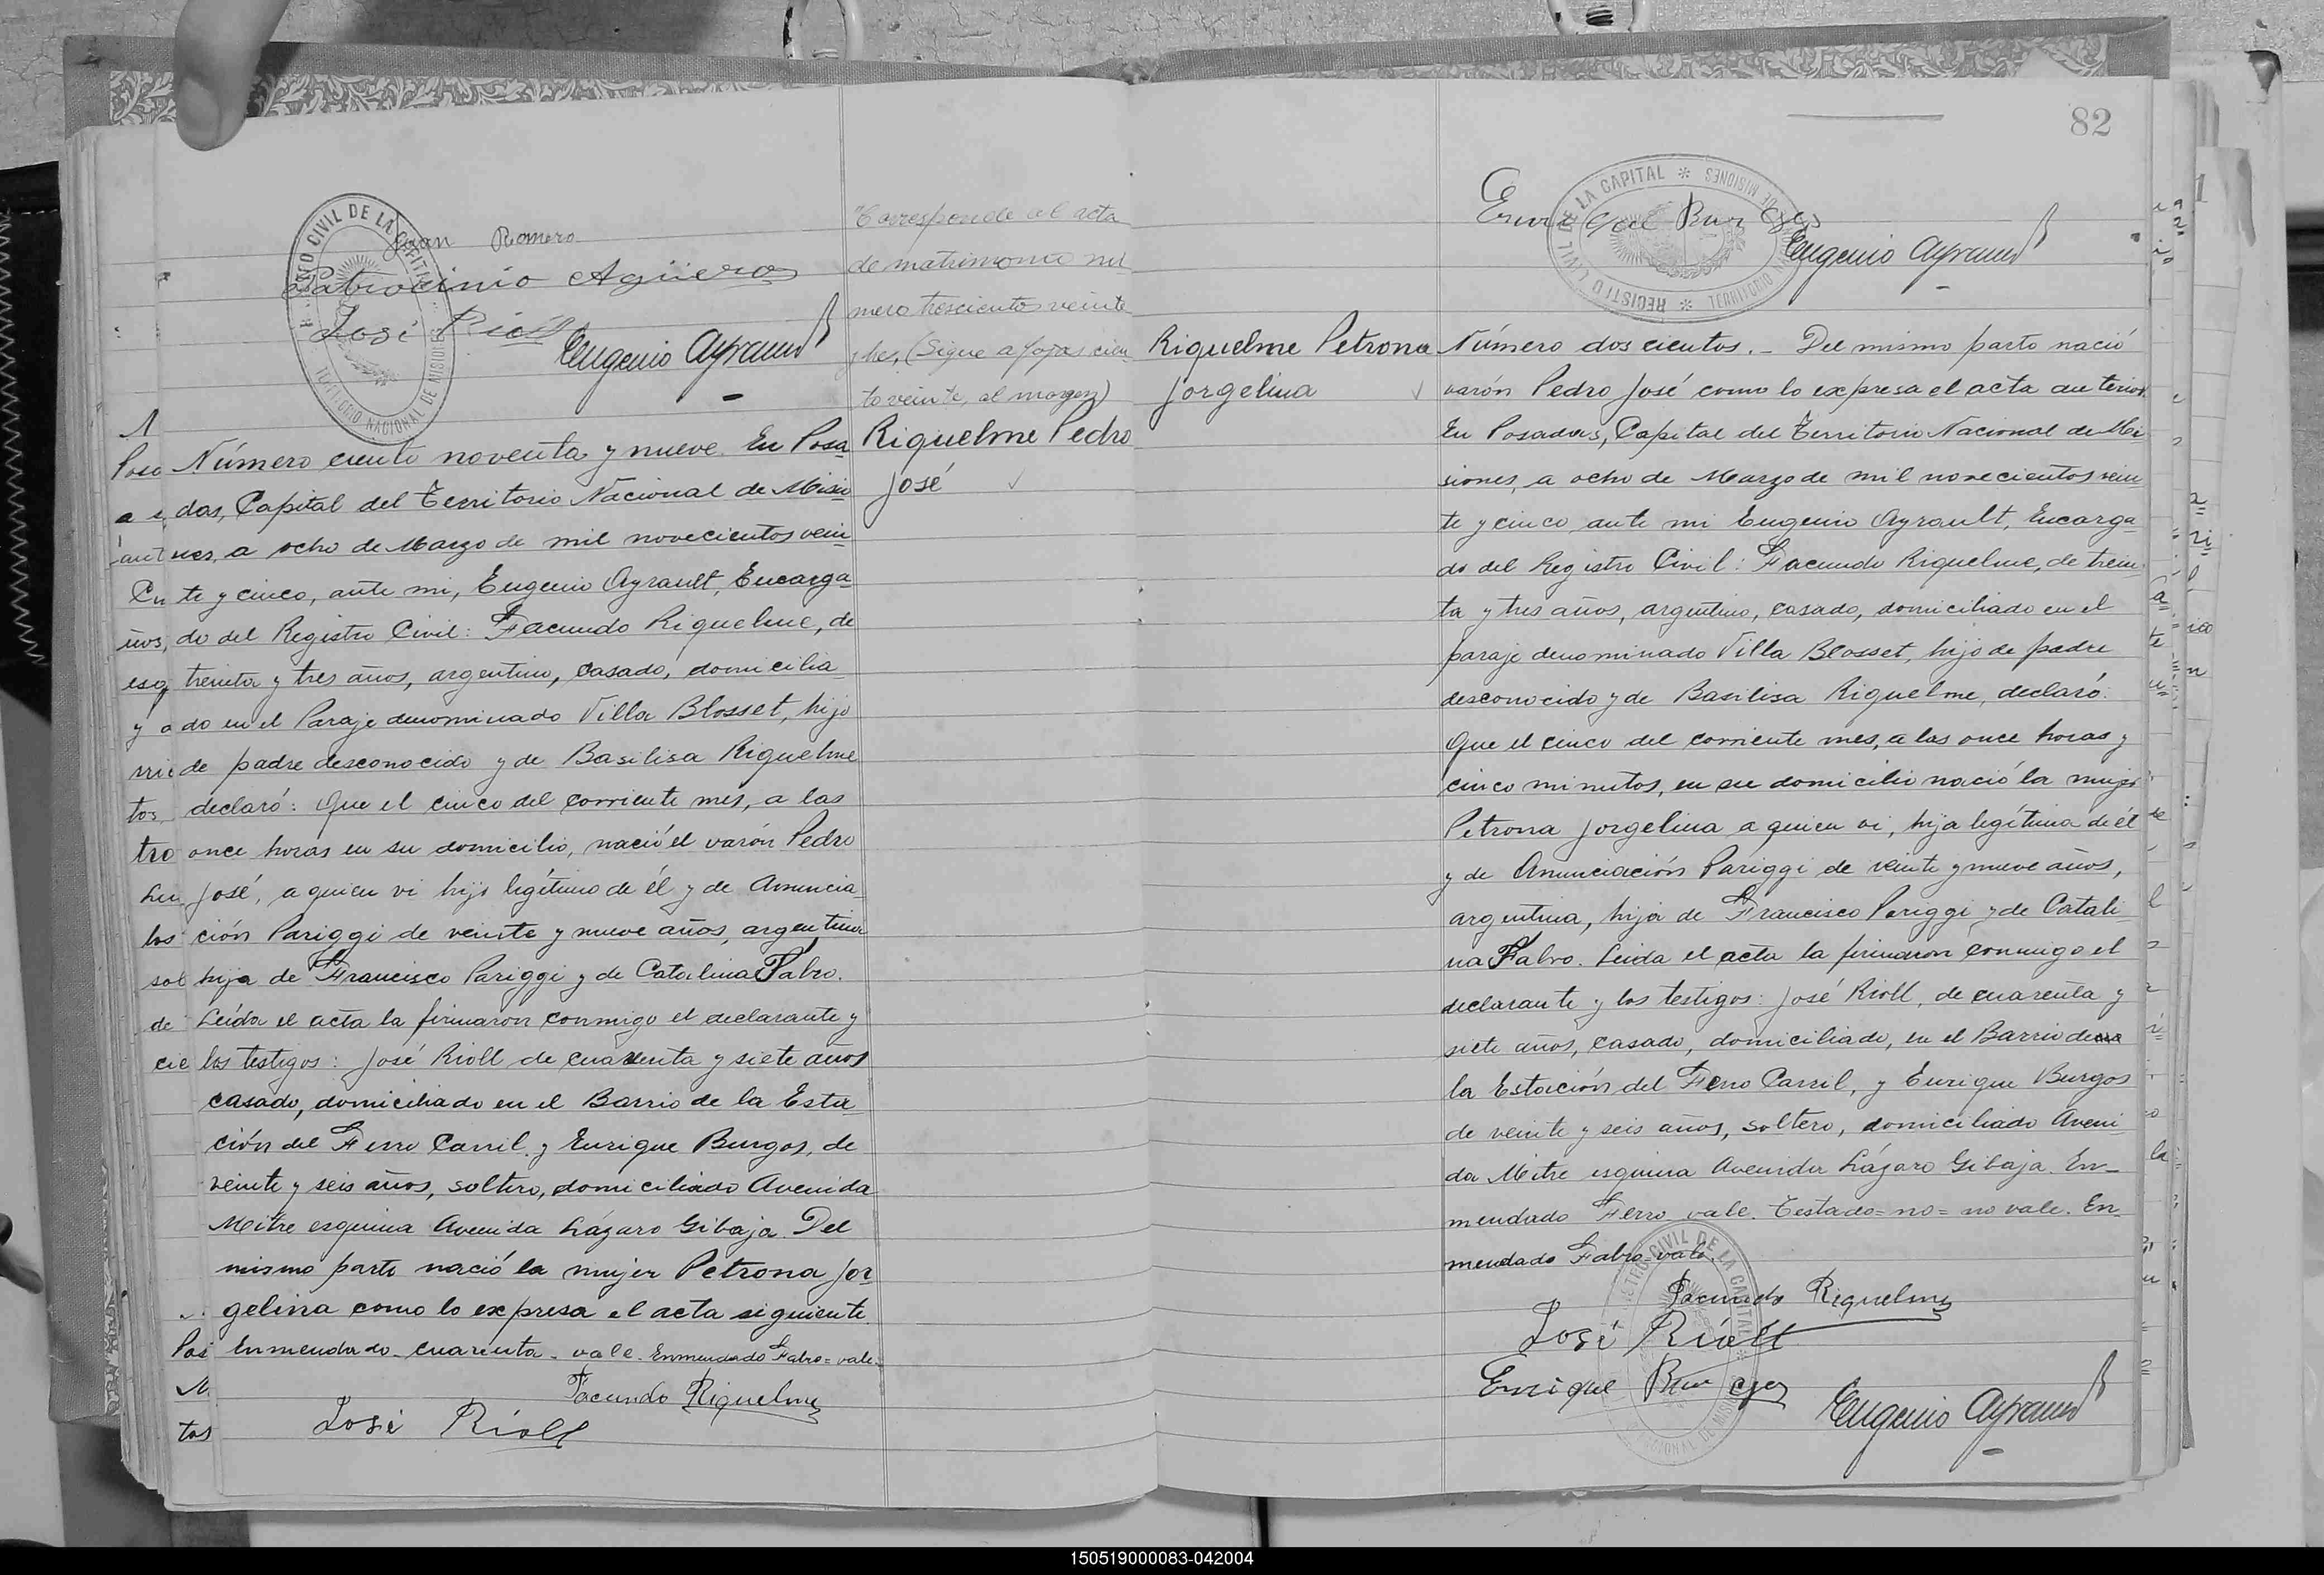 Juan Romero
Patrocinio Agüero
José Rioll
Eugenio Ayrault
Corresponde al acta
de matrimonio nú
mero trescientos veinte
y tres, (Sigue a fojas cien
to veinte, al margen)
Riquelme Pedro
José
Número ciento noventa y nueve. En Posa
das, Capital del Territorio Nacional de Misio
nes, a ocho de Marzo de mil novecientos vein
te y cinco, ante mi, Eugenio Ayrault, Encarga
do del Registro Civil: Facundo Riquelme, de
treinta y tres años, argentino, casado, domicilia
do en el Paraje denominado Villa Blosset, hijo
de padre desconocido y de Basilisa Riquelme
declaró: Que el cinco del corriente mes, a las
once horas en su domicilio, nació el varón Pedro
José, a quien vi hijo legítimo de él y de Anuncia
ción Pariggi de veinte y nueve años, argentina
hija de Francisco Pariggi y de Catalina Fabro.
Leída el acta la firmaron conmigo el declarante y
los testigos: José Rioll de cuarenta y siete años
casado, domiciliado en el Barrio de la Esta
ción del Ferro Carril, y Enrique Burgos, de
veinte y seis años, soltero, domiciliado Avenida
Mitre esquina Avenida Lázaro Gibaja. Del
mismo parto nació la mujer Petrona Jor
gelina como lo expresa el acta siguiente.
Enmendado - cuarenta - vale. Enmendado Fabro = vale =
Facundo Riquelme
José Rioll
82
Enrique Burgos
REGISTRO CIVIL DE LA CAPITAL * TERRITORIO NACIONAL DE MISIONES *
Eugenio Ayrault
Riquelme Petrona
Jorgelina
Número doscientos. - Del mismo parto nació
varón Pedro José como lo expresa el acta anterior.
En Posadas, Capital del Territorio Nacional de Mi
siones, a ocho de Marzo de mil novecientos vein
te y cinco ante mi Eugenio Ayrault, Encarga
do del Registro Civil: Facundo Riquelme, de trein
ta y tres años, argentino, casado, domiciliado en el
paraje denominado Villa Blosset, hijo de padre
desconocido y de Basilisa Riquelme, declaró:
Que el cinco del corriente mes, a las once horas y
cinco minutos, en su domicilio nació la mujer
Petrona Jorgelina a quien vi, hija legítima de él
y de Anunciación Pariggi de veinte y nueve años,
argentina, hija de Francisco Pariggi y de Catali
na Fabro. Leida el acta la firmaron conmigo el
declarante y los testigos: José Rioll, de cuarenta y
siete años, casado, domiciliado, en el Barrio de
la Estación del Ferro Carril, y Enrique Burgos
de veinte y seis años, soltero, domiciliado Aveni
da Mitre esquina Avenida Lázaro Gibaja. En-
mendado Ferro vale. Testado = no = no vale. En
mendado Fabro = vale.
Facundo Riquelme
José Rioll
Enrique Burgos
Eugenio Ayrault
150519000083-042004